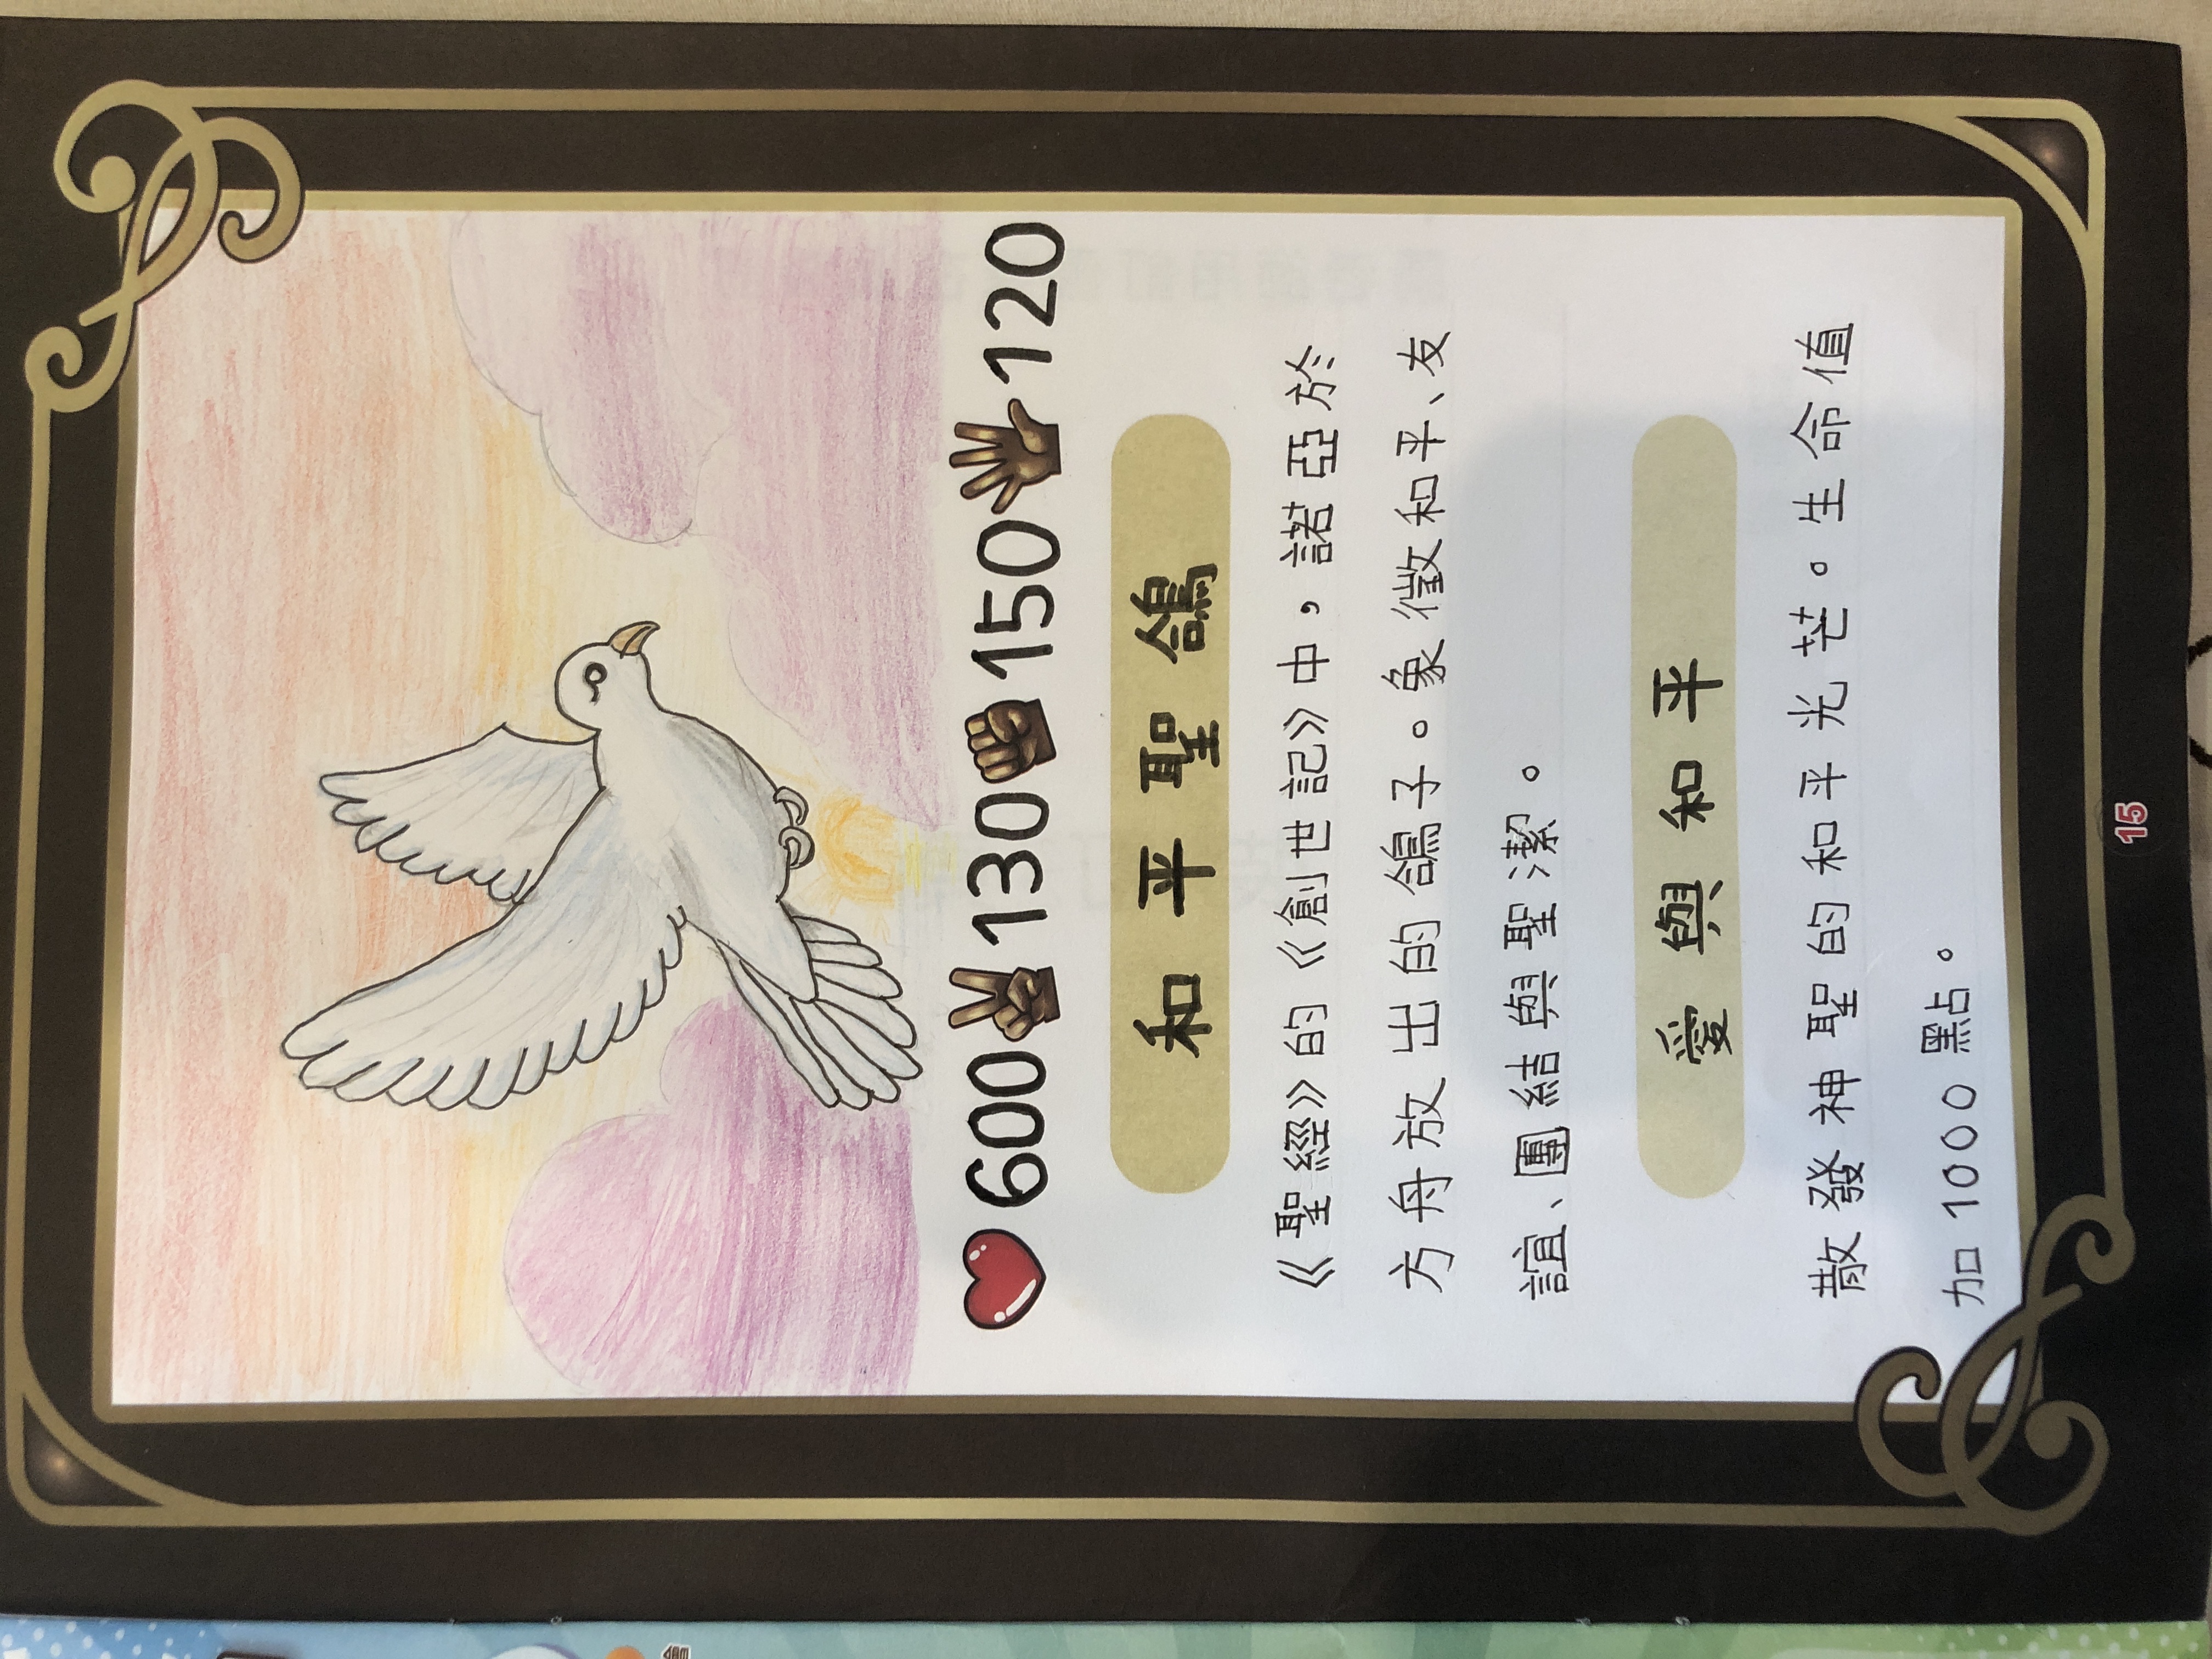 600 130 150 120
和平聖鴿
《聖經》的《創世記》中，諾亞於
方舟放出的鴿子。象徵和平、友
誼、團結與聖潔。
愛與和平
散發神聖的和平光芒。生命值
加1000點。
15